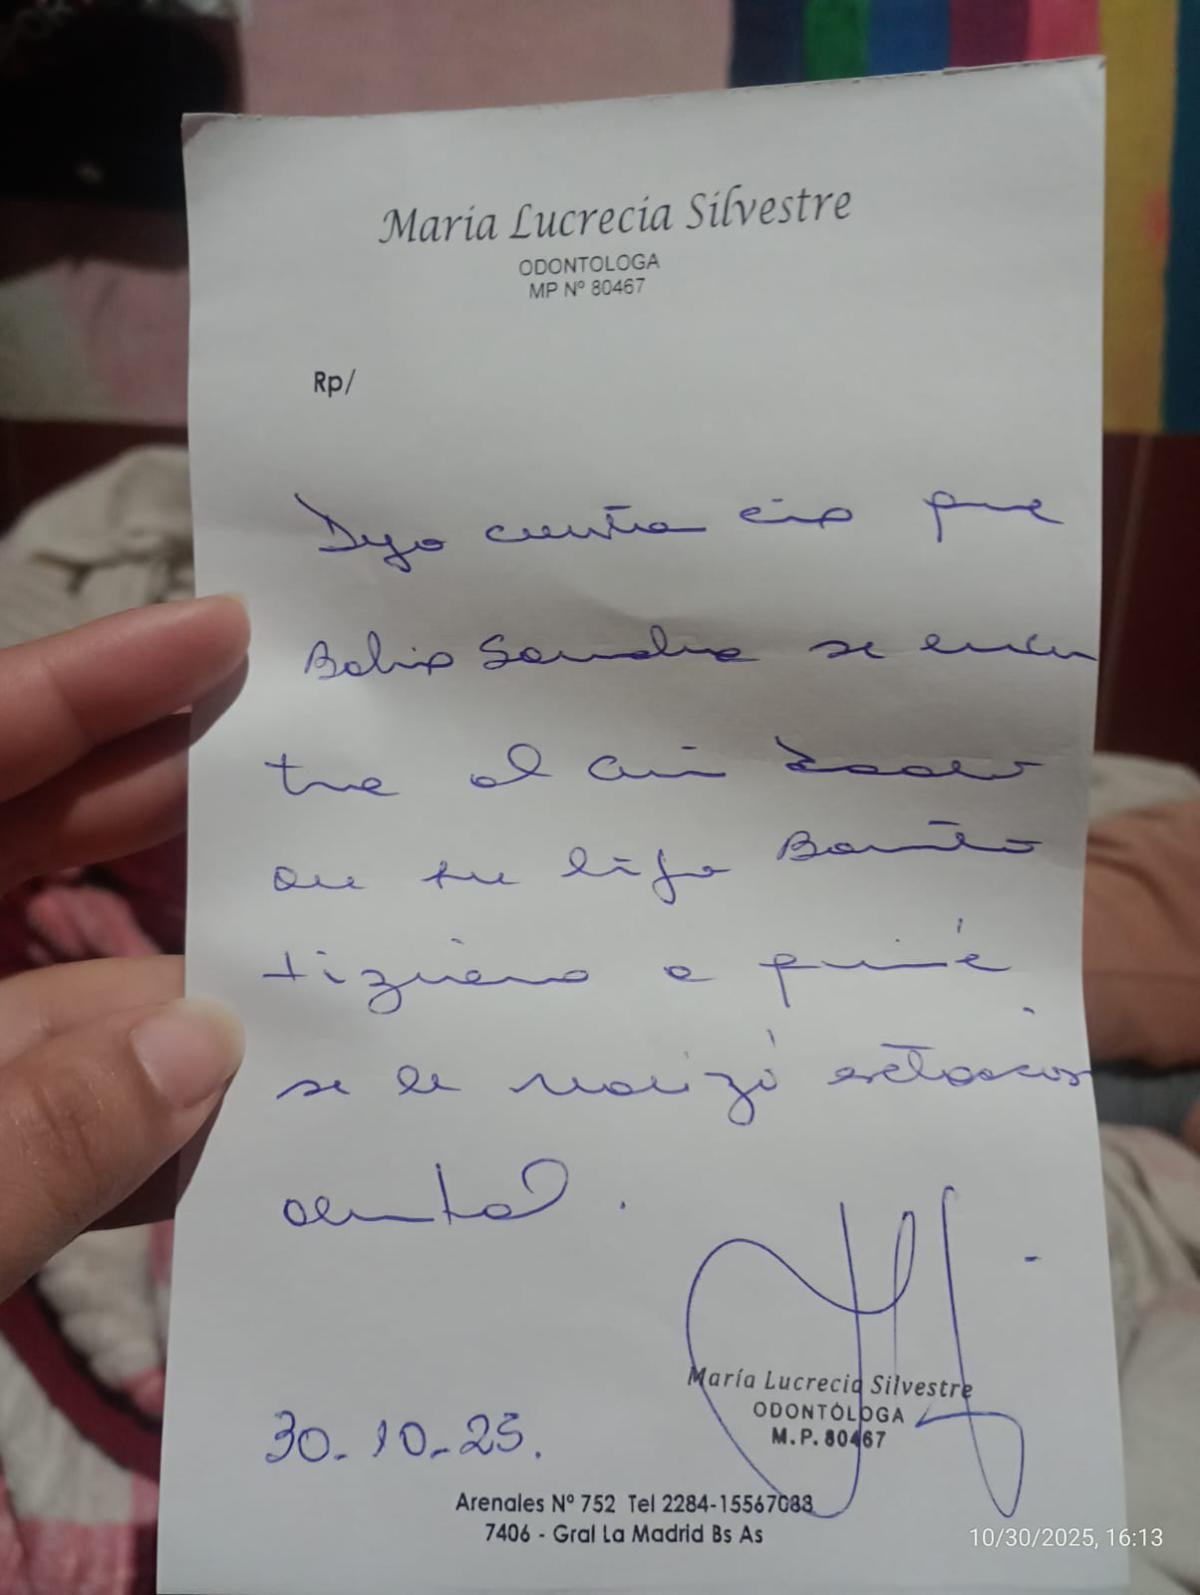 María Lucrecia Silvestre
ODONTOLOGA
MP Nº 80467
Rp/
Dejo constancia que
Sandra se encuen
tra al cui dado
de su hijo
a quien
se le realizó extraccion
dental.
30-10-25.
María Lucrecia Silvestre
ODONTÓLOGA
M.P. 80467
Arenales Nº 752 Tel 2284-15567088
7406 - Gral La Madrid Bs As
10/30/2025, 16:13